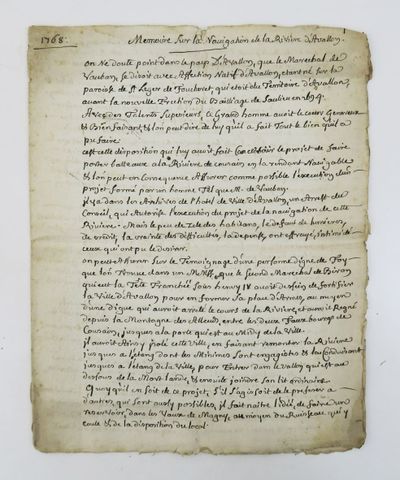 1768.
Memoire Sur la Navigation de la Riviere d'Avallon.
on Ne doute point dans le pays D'Avallon, que le Marechal de
Vauban, se disoit avec Affection Natif d'Avallon, etant né sur la
paroisse de St Leger de Foucheret, qui etoit du Territoire d'Avallon,
avant la nouvelle Erection du Bailliage de Saulieu en
Avec des Talents Superieurs, ce Grand homme avoit le cœur Genereux
& Bien faisant, & lon peut dire de luy qu'il a fait Tout le bien qu'il a
pu faire
cest cette disposition qui luy avoit fait le projet de faire
porter batteaux a la Riviere de cousain, en la rendant Navigable
& lon peut en Consequence Assurer comme possible l'execution d'un
projet formé par un homme Tel que M. de Vauban.
il y a dans les Archives de l'hotel de Ville d'Avallon, un Arrest du
Conseil, qui Autorise l'execution du projet de la navigation de cette
Riviere. Mais le peu de Zele des habitans, le defaut de lumieres,
de credit, la crainte des difficultés, la depense, ont effrayé
ceux qui ont pu le desirer.
on peut Assurer Sur le Temoignage d'une personne digne de Foy
que lon Trouve dans un que le Second Marechal de Biron
qui eut la Tete Tranchée Sous henry IV avoit dessein de fortifier
la Ville d'Avallon, pour en former Sa place d'Armes, au moyen
d'une digue qui auroit arreté le cours de la Riviere, et auroit Regné
depuis la Montagne des Alleus, entre les deux Faux bourgs de
Cousains, jusques a la partie qui est au Midy de la Ville.
il auroit Ainsy isolé cette Ville, en faisant remonter la Riviere
jusques a l'etang dont les Minimes Sont engagistes & la Conduisant
jusques a l'etang de la Ville, pour Entrer dans le Vallon qui est au
dessous de la & ensuite joindre Son lit ordinaire.
Quoy qu'il en soit de ce projet, S'il S'agissoit de le preferer a
d'autres, qui Sont aussy possibles, il fait naitre l'idée, de faire un
reservoir, dans les Vaux de Magny, au moyen du Ruisseau qui y
coule & de la disposition du local.